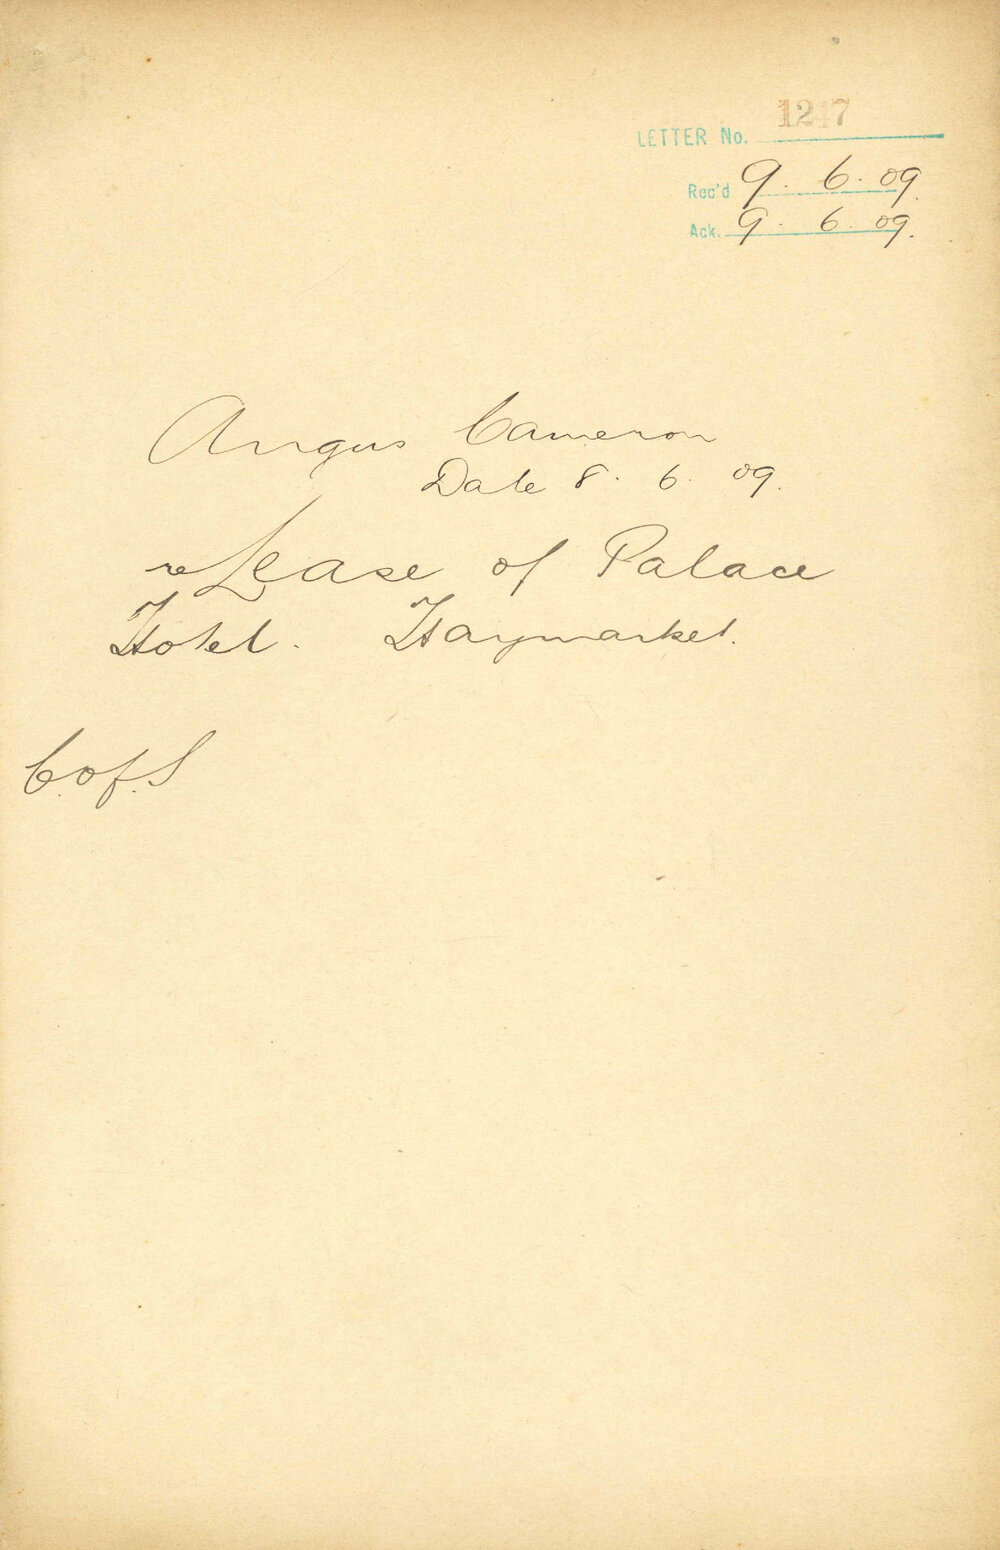 LETTER No. 1247
Rec'd 9. 6. 09.
Ack. 9. 6. 09.
Angus Cameron
Date 8. 6. 09.
re Lease of Palace
Hotel. Haymarket.
C. of. S